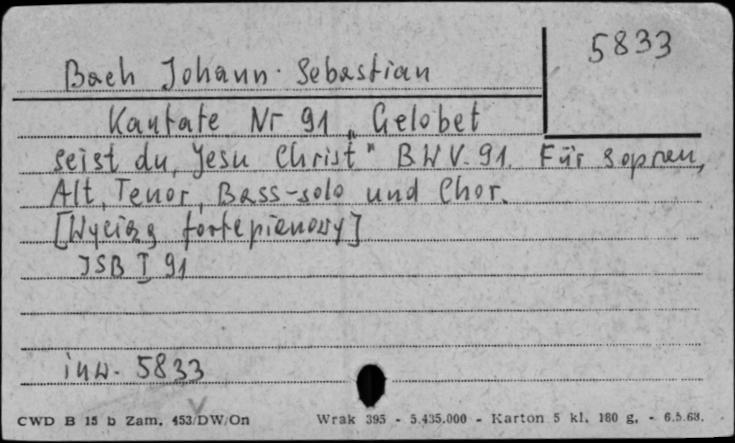 5833
Bach Johann Sebastian
Kantate Nr 91 „Gelobet
seist du, Jesu Christ" BWV. 91. Für Sopran,
Alt, Tenor, Bass-solo und Chor.
[Wyciąg fortepianowy]
JSB I 91
inw. 5833
CWD B 15 b Zam. 453/DW/On Wrak 395 - 5.435.000 - Karton 5 kl. 180 g. - 6.5.68.